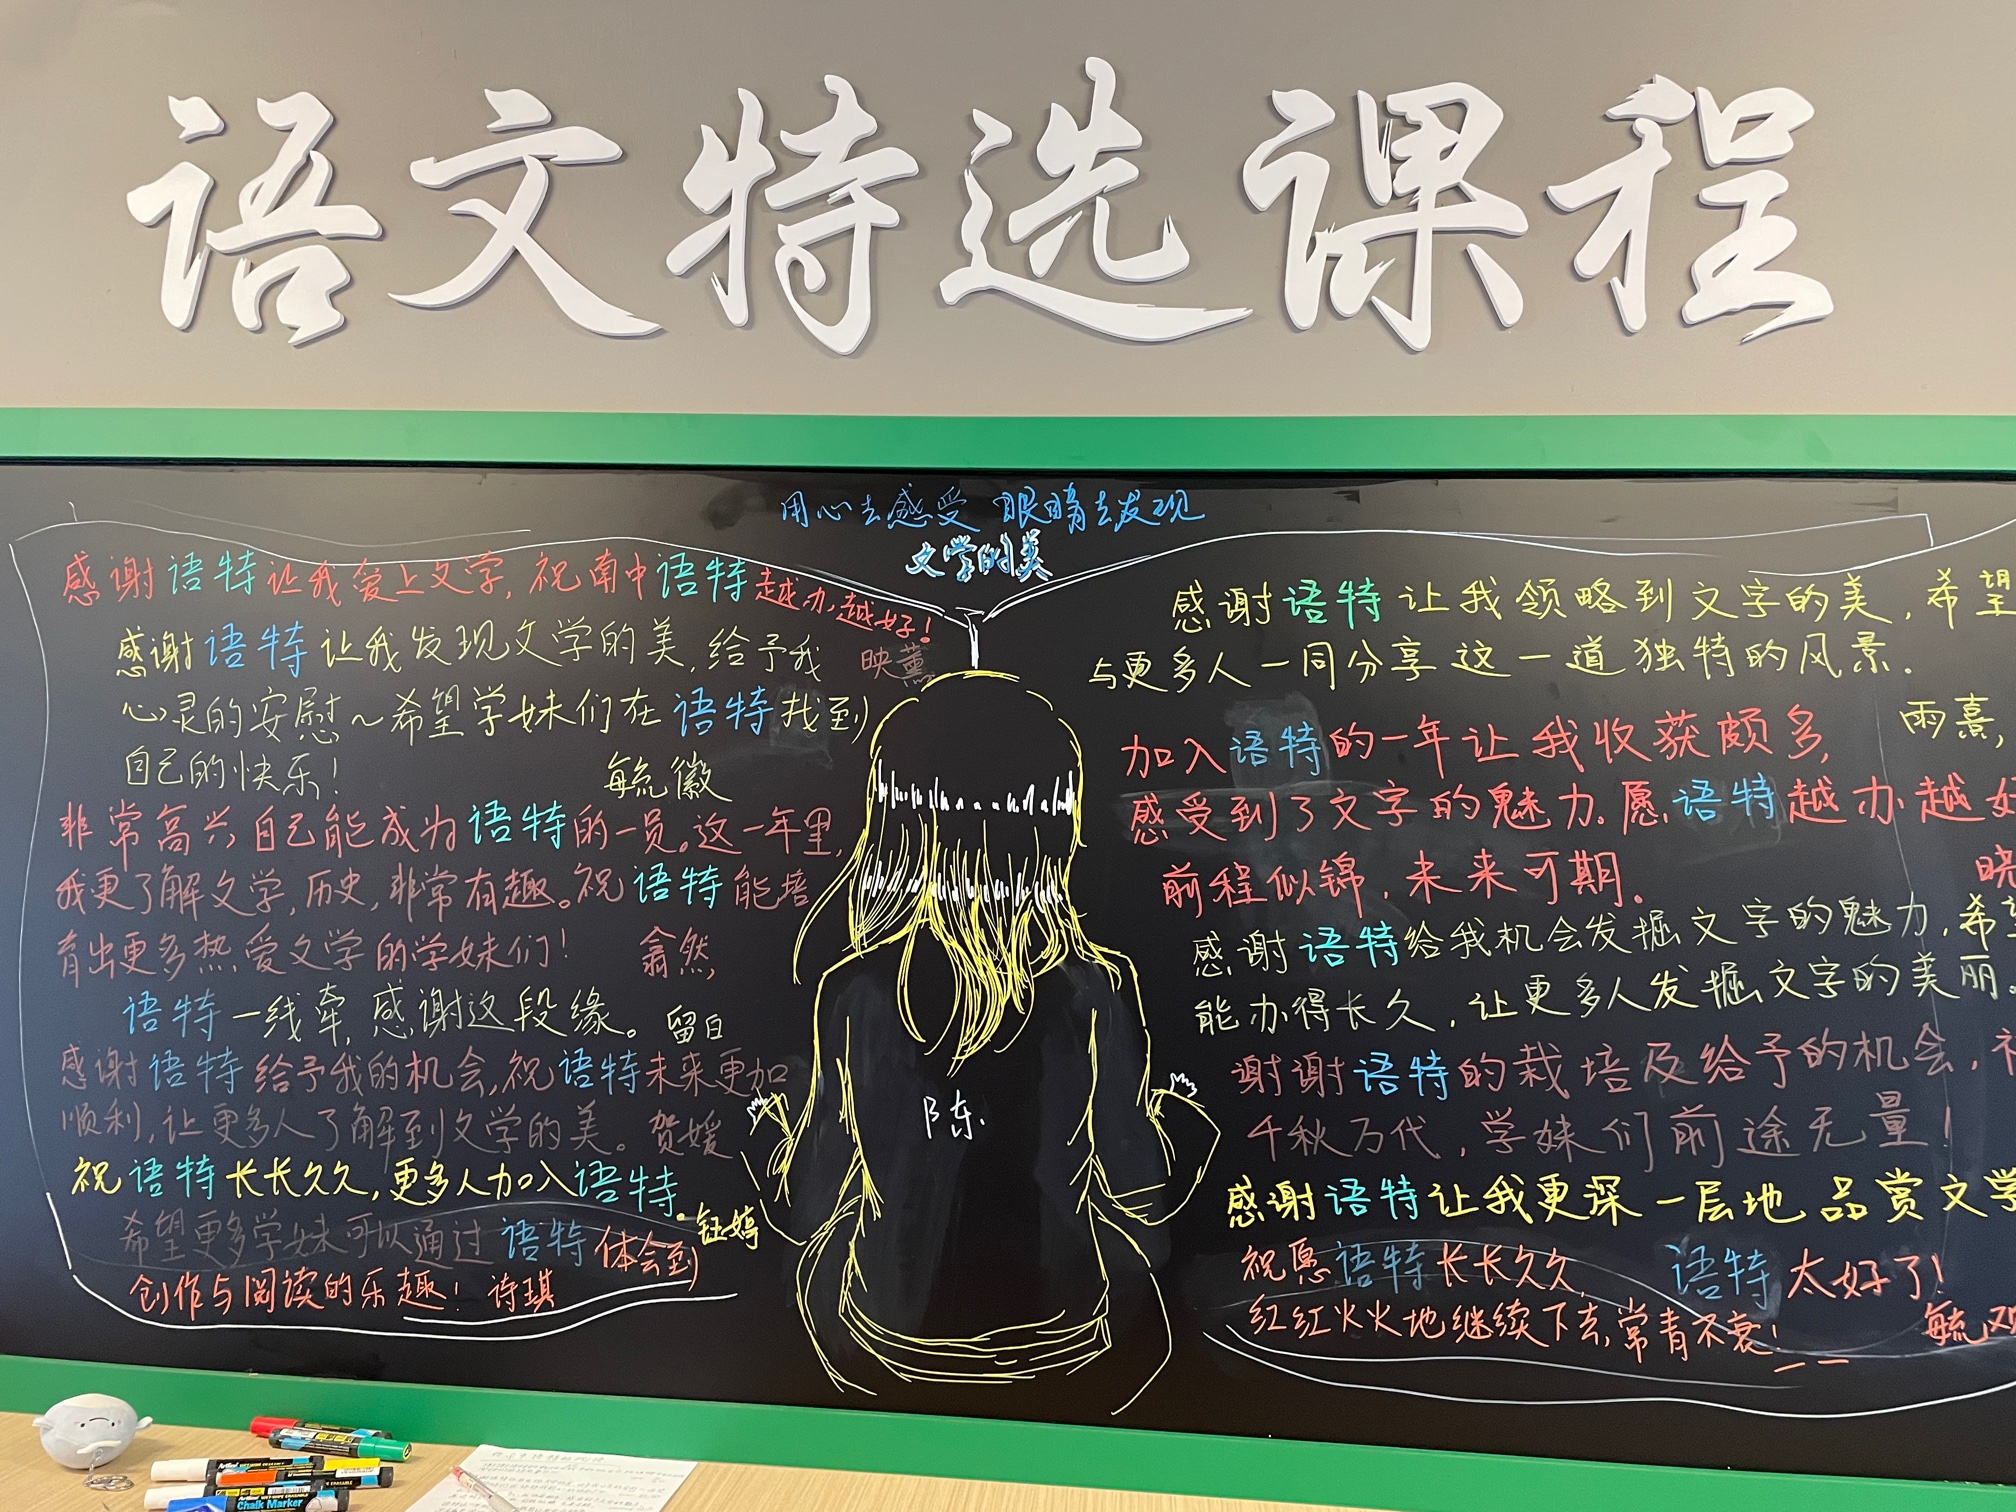 语文特选课程
用心去感受 眼睛去发现
文学的美
感谢语特让我爱上文学，祝南中语特越办越好！
映薰
感谢语特让我发现文学的美，给予我
心灵的安慰~希望学妹们在语特找到
自己的快乐！ 毓徽
非常高兴自己能成为语特的一员。这一年里，
我更了解文学，历史，非常有趣。祝语特能培
育出更多热爱文学的学妹们！ 翕然
语特一线牵，感谢这段缘。 留白
感谢语特给予我的机会，祝语特未来更加
顺利，让更多人了解到文学的美。 贺媛
祝语特长长久久，更多人加入语特。
钰婷
希望更多学妹可以通过语特体会到
创作与阅读的乐趣！ 诗琪
陈
感谢语特让我领略到文字的美，希望
与更多人一同分享这一道独特的风景。
雨熹
加入语特的一年让我收获颇多，
感受到了文字的魅力。愿语特越办越好
前程似锦，未来可期。
感谢语特给我机会发掘文字的魅力，希
能办得长久，让更多人发掘文字的美丽。
谢谢语特的栽培及给予的机会，
千秋万代，学妹们前途无量！
感谢语特让我更深一层地品赏文学
祝愿语特长长久久，
红红火火地继续下去，常青不衰！
语特太好了！
毓
Artline
Chalk Marker